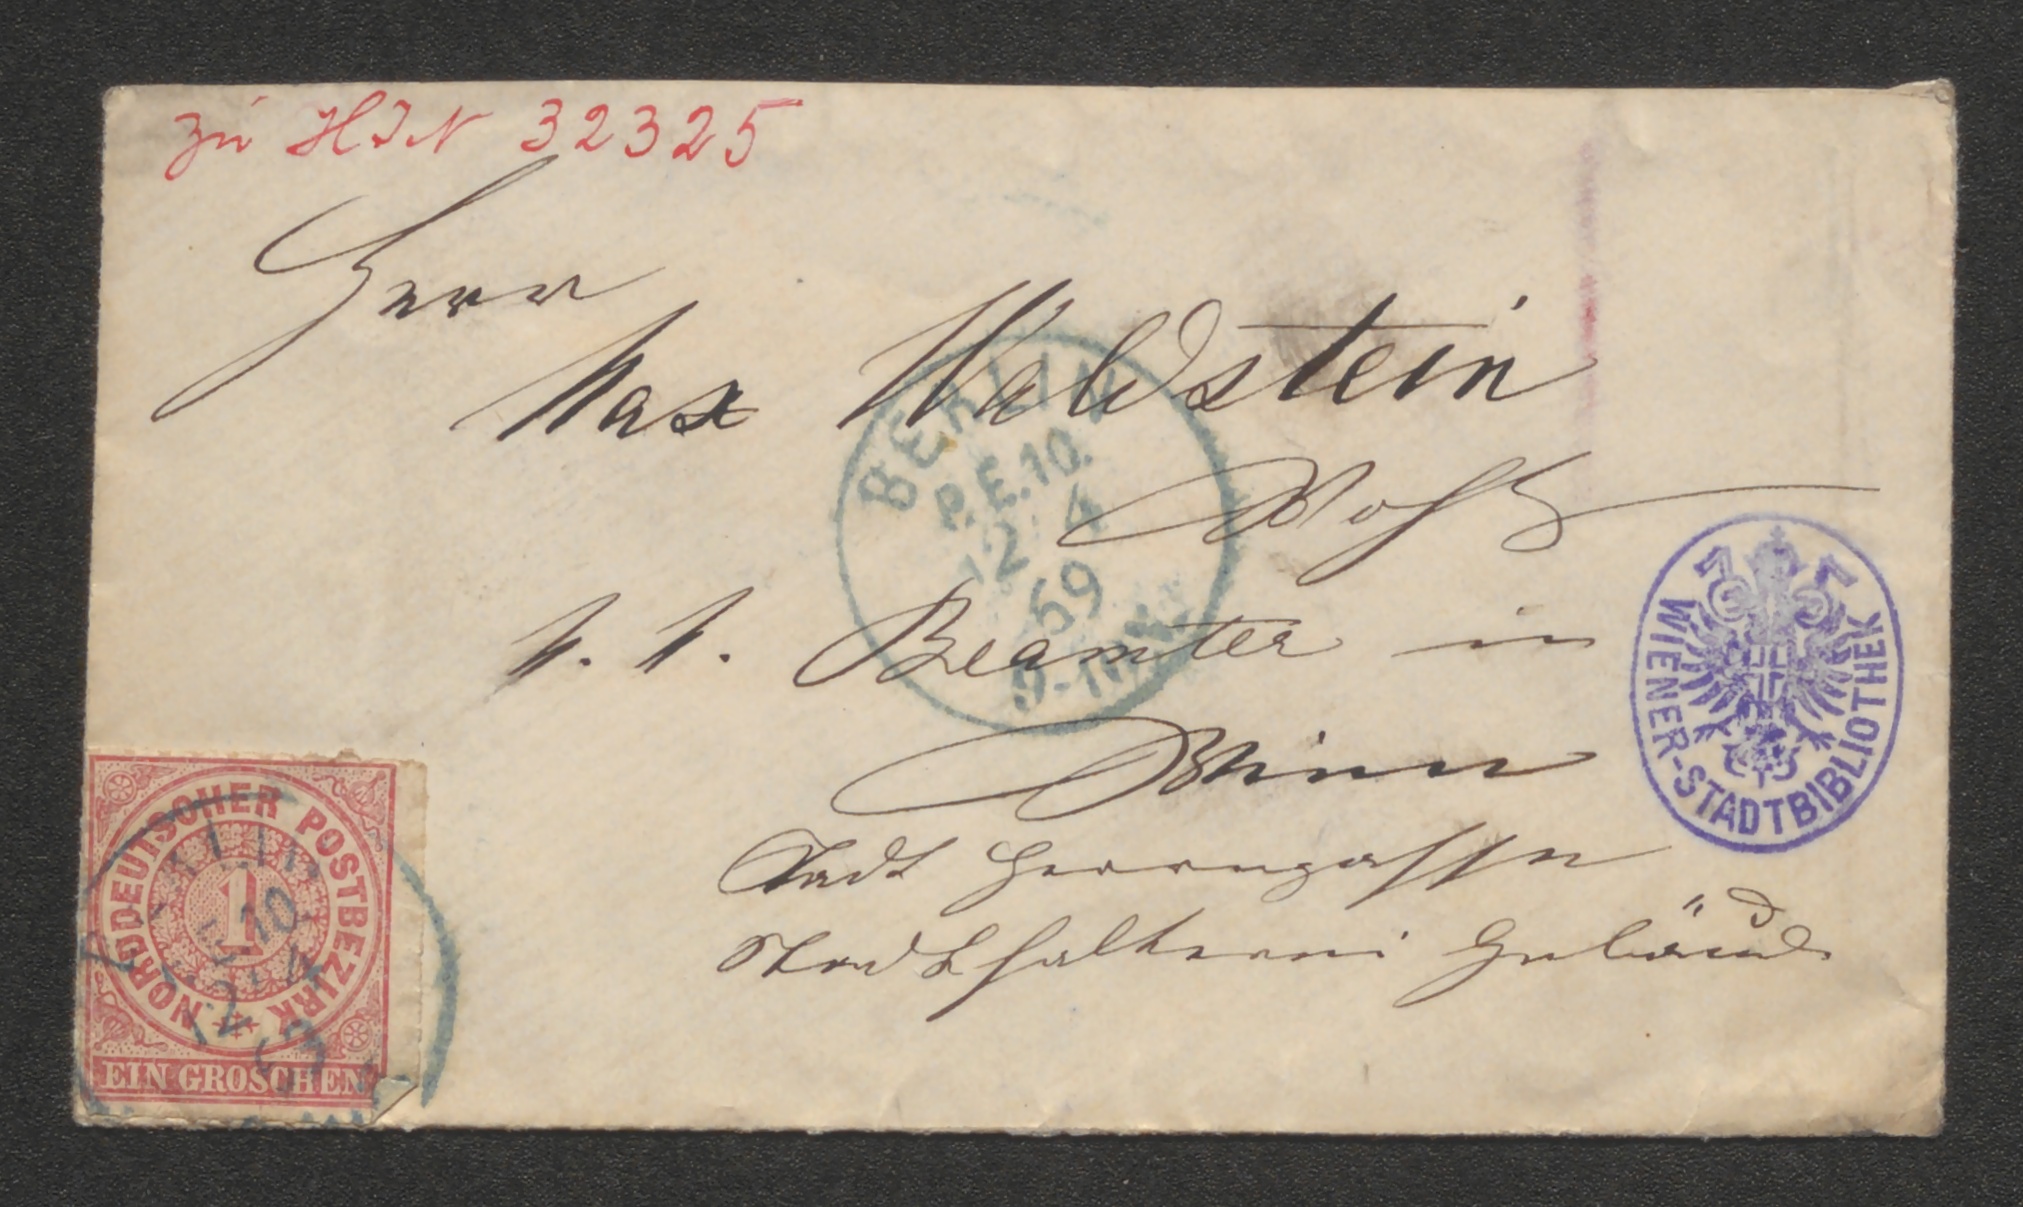 zu HIN 32325
Herr
Max Waldstein
Wohlg
k. k. Beamter in
Wien
Stadt Herrengasse
Stadthalterei Gebäude
BERLIN
P.E.10.
12 4
69
9-10 V.
WIENER-STADTBIBLIOTHEK
NORDDEUTSCHER POSTBEZIRK
1
EIN GROSCHEN
BERLIN
E.10
12 4
69